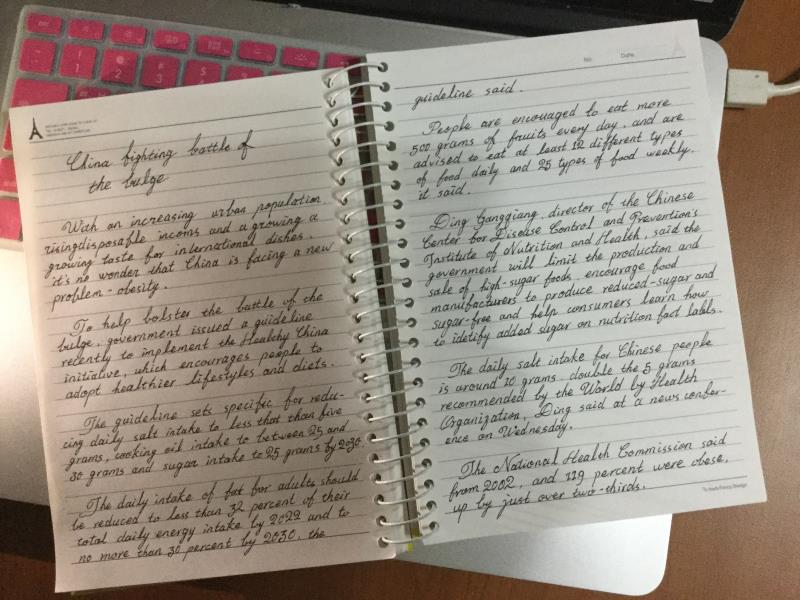 China fighting battle of
the bulge
With an increasing urban population
rising disposable incoms and a growing a
growing taste for international dishes.
it's no wonder that China is facing a new
problem - obesity.
To help bolster the battle of the
bulge, government issued a guideline
recently to implement the Healthy China
initiative, which encourages people to
adopt healthier lifestyles and diets.
The guideline sets specific for redu-
cing daily salt intake to less that than five
grams, cooking oil intake to between 25 and
30 grams and sugar intake to 25 grams by 2030.
The daily intake of fat for adults should
be reduced to less than 32 percent of their
total daily energy intake by 2022 and to
no more than 30 percent by 2030, the
No. Date.
guideline said.
People are encouaged to eat more
500 grams of fruits every day, and are
advised to eat at least 12 different types
of food daily and 25 types of food weekly.
it said.
Ding Ganggiang, director of the Chinese
Center for Disease Control and Prevention's
Institute of Nutrition and Health, said the
government will limit the production and
sale of high-sugar foods, encourage food
manufacturers to produce reduced-sugar and
sugar-free and help consumers learn how
to idetify added sugar on nutrition fact labls.
The daily salt intake for Chinese people
is around 10 grams, double the 5 grams
recommended by the World by Health
Organization, Ding said at a news confer-
ence on Wednesday.
The National Health Commission said
from 2002, and 119 percent were obese,
up by just over two-thirds.